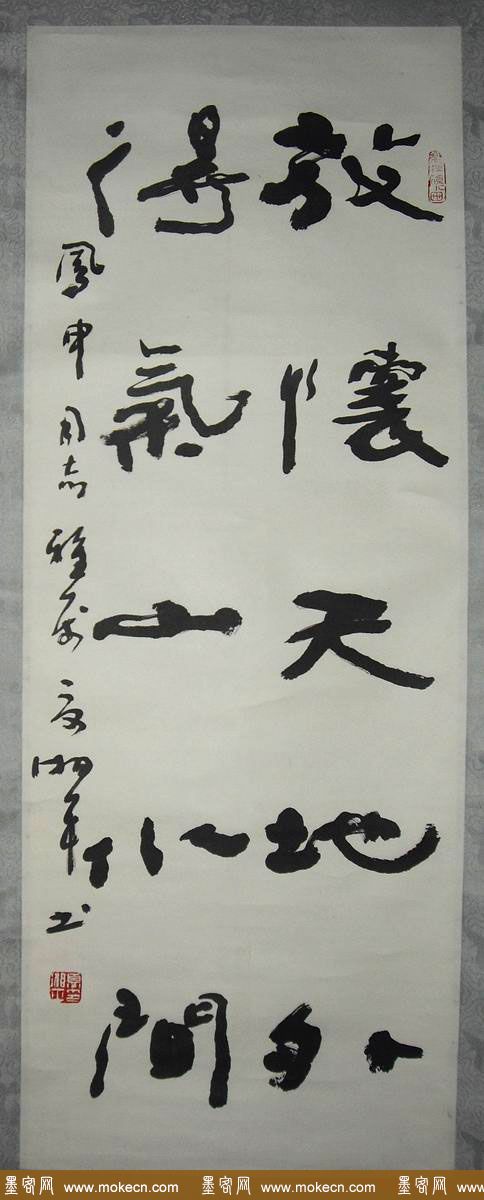 放懷天地外
得氣山水間
鳳申同志雅属 夏湘平书
墨客网 www.mokecn.com 墨客网 www.mokecn.com 墨客网 www.mokecn.com